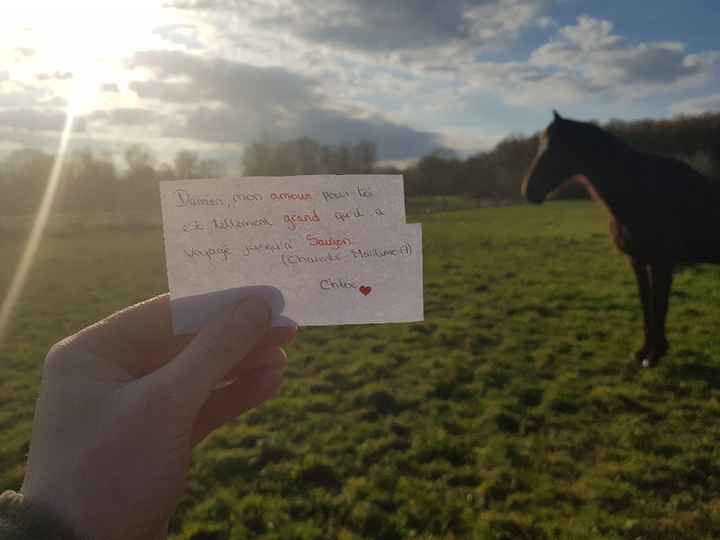 Damien, mon amour pour toi
est tellement grand qu'il a
voyagé jusqu'à Saujon
(Charente Maritime !!)
Chloé